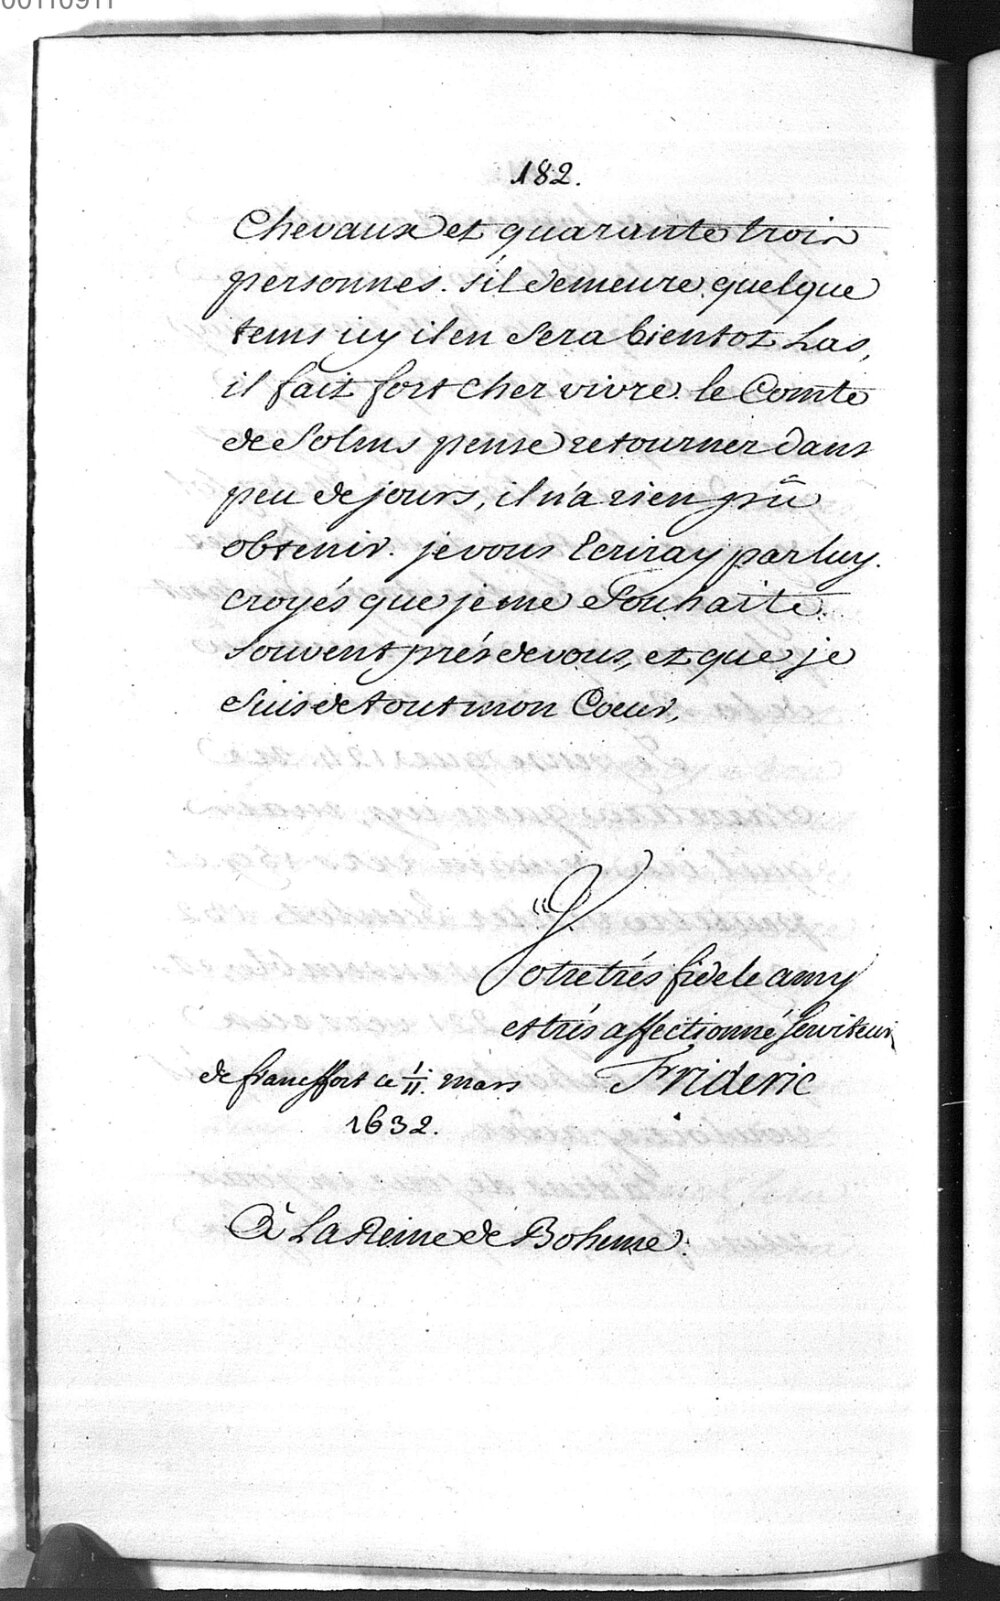 00110911
182.
Chevaux et quarante trois
personnes. s'il demeure quelque
tems icy il en sera bientot Las,
il fait fort cher vivre. le Comte
de Solms pense retourner dans
peu de jours, il n'a rien pû
obtenir. je vous Ecriray par luy.
croyés que je me souhaite
souvent prés de vous, et que je
suis de tout mon Coeur,
Votre trés fidele amy
et trés affectionné serviteur
de francffort ce 1/11. mars Frideric
1632.
À La Reine de Boheme.